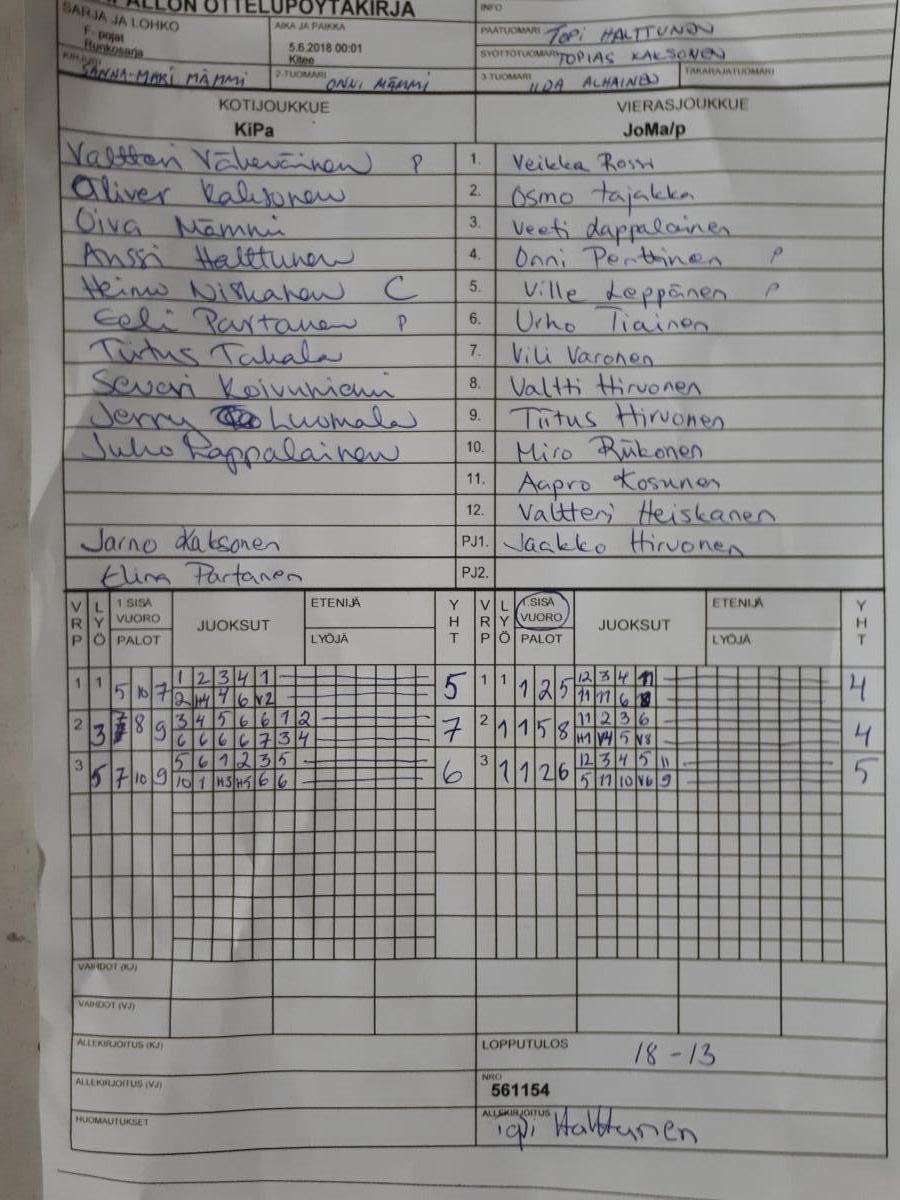 ALLON OTTELUPÖYTÄKIRJA
SARJA JA LOHKO AIKA JA PAIKKA INFO
F- pojat
Runkosarja
5.6.2018 00:01
Kitee
PÄÄTUOMARI TOPI HALTTUNEN
SYÖTTÖTUOMARI TOPIAS KAKSONEN
KIRJURI SANNA-MARI MÄMMI 2-TUOMARI ONNI MÄMMI 3-TUOMARI IIDA ALHAINEN TAKARAJATUOMARI
KOTIJOUKKUE VIERASJOUKKUE
KiPa JoMa/p
Valtteri Väkeväinen P 1. Veikka Rossi
Oliver Kaksonen 2. Osmo Tajakka
Oiva Mämmi 3. Veeti Lappalainen
Anssi Halttunen 4. Onni Penttinen P
Heimo Niskanen C 5. Ville Leppänen P
Eeli Partanen P 6. Urho Tiainen
Tiitus Takala 7. Vili Varonen
Severi Koivuniemi 8. Valtti Hirvonen
Jerry Luomala 9. Tiitus Hirvonen
Juho Lappalainen 10. Miro Riikonen
11. Aapro Kosunen
12. Valtteri Heiskanen
Jarno Kaksonen PJ1. Jaakko Hirvonen
Elina Partanen PJ2.
VRP LYÖ 1.SISÄ VUORO PALOT JUOKSUT ETENIJÄ LYÖJÄ YHT VRP LYÖ 1.SISÄ VUORO PALOT JUOKSUT ETENIJÄ LYÖJÄ YHT
1 1 5 10 7 1 2 3 4 1 5 1 1 1 2 5 12 3 4 11 4
2 H4 4 6 V2 11 11 6 8
2 3 7 8 9 3 4 5 6 6 1 2 7 2 1 1 5 8 11 2 3 6 4
6 6 6 6 7 3 4 H1 V4 5 V8
3 5 7 10 9 5 6 1 2 3 5 6 3 1 1 2 6 12 3 4 5 11 5
10 1 H3 H5 6 6 5 11 10 V6 9
VAIHDOT (KJ)
VAIHDOT (VJ)
ALLEKIRJOITUS (KJ) LOPPUTULOS 18-13
ALLEKIRJOITUS (VJ) NRO
561154
HUOMAUTUKSET ALLEKIRJOITUS
Topi Halttunen